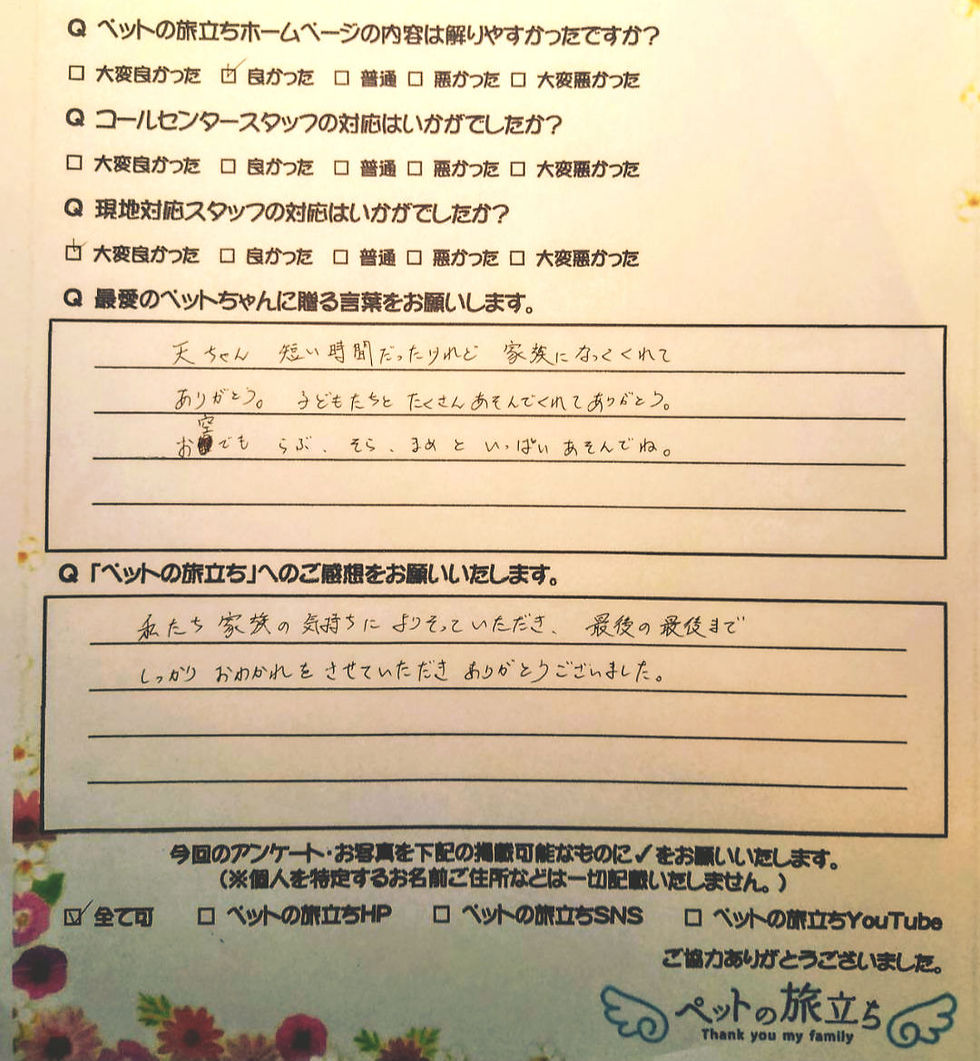 Q ペットの旅立ちホームページの内容は解りやすかったですか?
☐ 大変良かった ☑ 良かった ☐ 普通 ☐ 悪かった ☐ 大変悪かった
Q コールセンタースタッフの対応はいかがでしたか?
☐ 大変良かった ☐ 良かった ☐ 普通 ☐ 悪かった ☐ 大変悪かった
Q 現地対応スタッフの対応はいかがでしたか?
☑ 大変良かった ☐ 良かった ☐ 普通 ☐ 悪かった ☐ 大変悪かった
Q 最愛のペットちゃんに贈る言葉をお願いします。
天ちゃん 短い時間だったけれど 家族になってくれて
ありがとう。 子どもたちと たくさんあそんでくれてありがとう。
お空でも らぶ、そら、まめ と いっぱい あそんでね。
Q 「ペットの旅立ち」へのご感想をお願いいたします。
私たち 家族の 気持ちに よりそっていただき、 最後の最後まで
しっかり おわかれを させていただき ありがとうございました。
今回のアンケート・お写真を下記の掲載可能なものに✓をお願いいたします。
(※個人を特定するお名前ご住所などは一切記載いたしません。)
☑ 全て可 ☐ ペットの旅立ちHP ☐ ペットの旅立ちSNS ☐ ペットの旅立ちYouTube
ご協力ありがとうございました。
ペットの旅立ち
Thank you my family